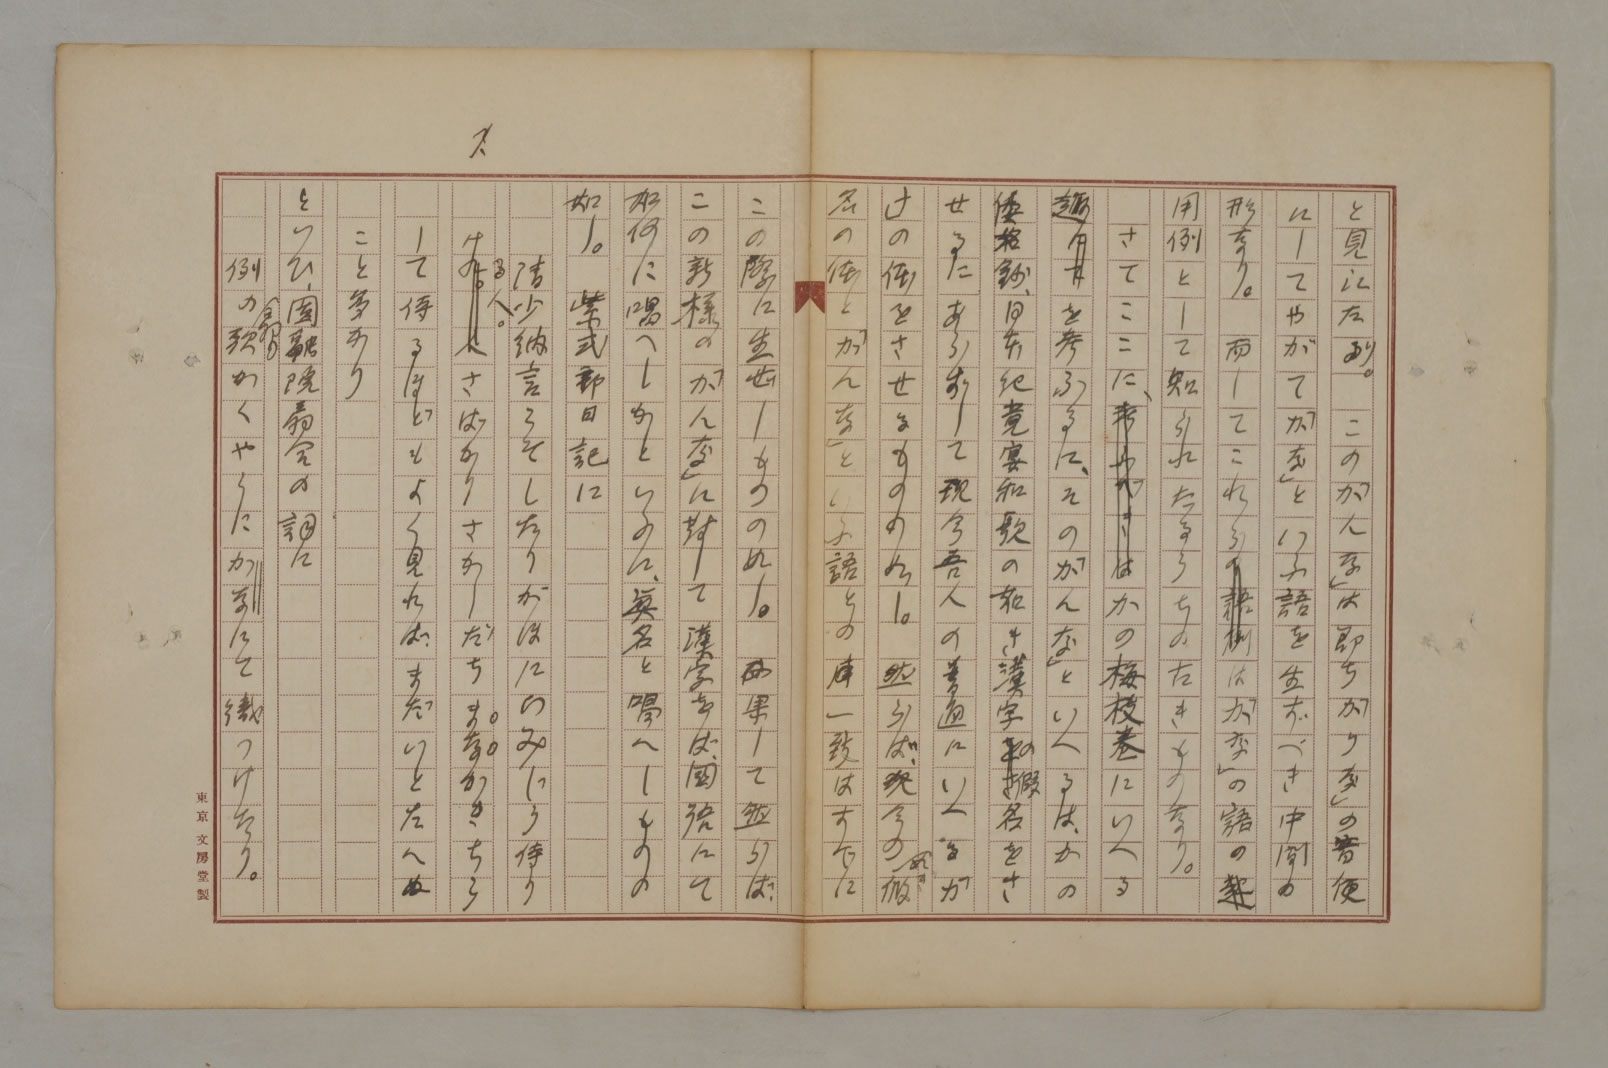 と見江たり。このがんな」は即ちがりな」の音便
にしてやがてがな」といふ語を生ずべき中間の
形なり。而してこれらの語例はがな」の語の
用例として知られたるうちの古きものなり。
さてここに、はかの梅枝巻にいへる
趣を考ふるに、そのがんな」といへるは、かの
倭格鈔、日本紀竟宴和歌の如き漢字の假名をさ
せるにあらずして現今吾人の普通にいへるが
な」の体をさせるものの如し。然らば、現今の假
名の体とがんな」といふ語との一致はすでに
この際に生ぜしものの如し。而果して然らば、
この新様のがんな」に対して漢字をば、国語にて
如何に唱へしかといふに、眞名と唱へしものの
如し。紫式部日記に
清少納言こそしたりがほにいみじう侍り
ける人。さばかりさかしだちまなかきちら
して侍るほどもよく見ればまだいとたへぬ
こと多かり
といひ、圓融院扇合の詞に
例の歌かくやうにかなにて繡つけたり。
東京 文房堂製